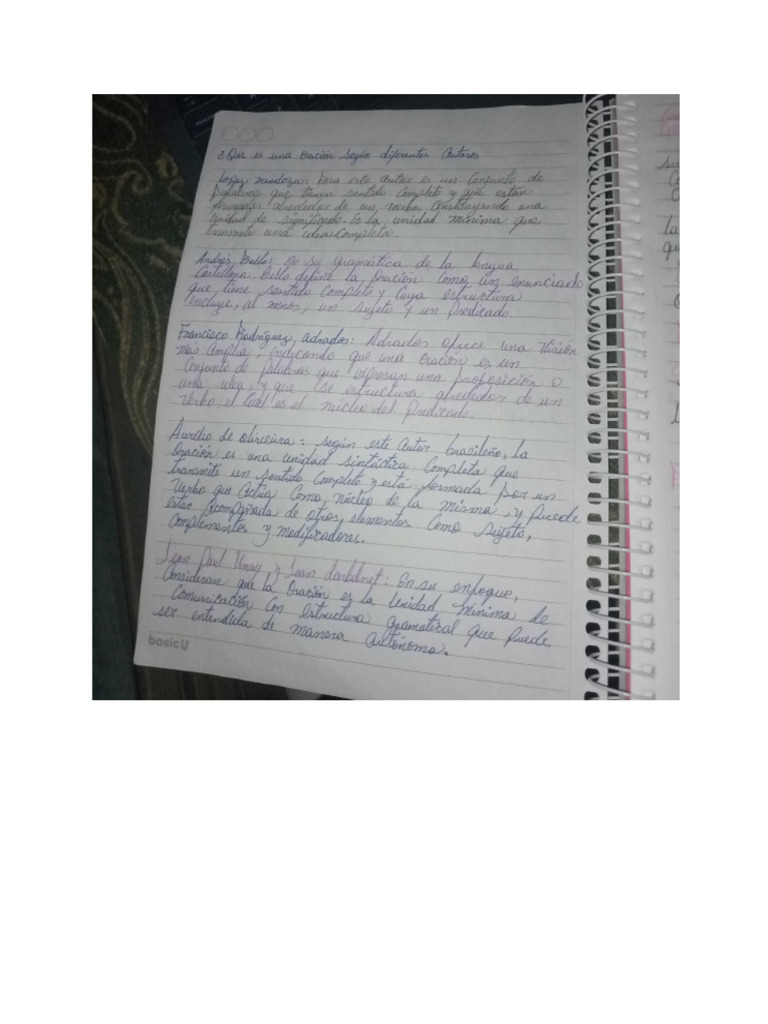 ¿Que es una oración según diferentes Autores
Mendoza: Para este autor es un Conjunto de
Palabras que tienen sentido Completo y que están
alrededor de un verbo, Constituyendo una
unidad de significado. Es la unidad mínima que
transmite una idea Completa.
Andrés Bello: En su gramática de la lengua
Castellana. Bello define la Oración Como un enunciado
que tiene sentido Completo y Cuya estructura
incluye, al menos, un sujeto y un Predicado.
Francisco Rodríguez adrados: Adrados ofrece una Visión
mas amplia, indicando que una Oración es un
Conjunto de Palabras que expresan una proposición o
una idea, y que se estructura alrededor de un
Verbo, el Cual es el núcleo del Predicado.
Aurelio de oliveira: según este Autor brasileño, la
Oración es una unidad sintáctica Completa que
transmite un sentido Completo y está formada por un
Verbo que Actúa Como núcleo de la misma, y puede
estar acompañada de otros elementos Como sujeto,
Complementos y modificadores.
Jean Paul Vinay y Jean darbelnet: En su enfoque,
Consideran que la Oración es la Unidad mínima de
Comunicación Con estructura gramatical que Puede
ser entendida de manera Autónoma.
basicU